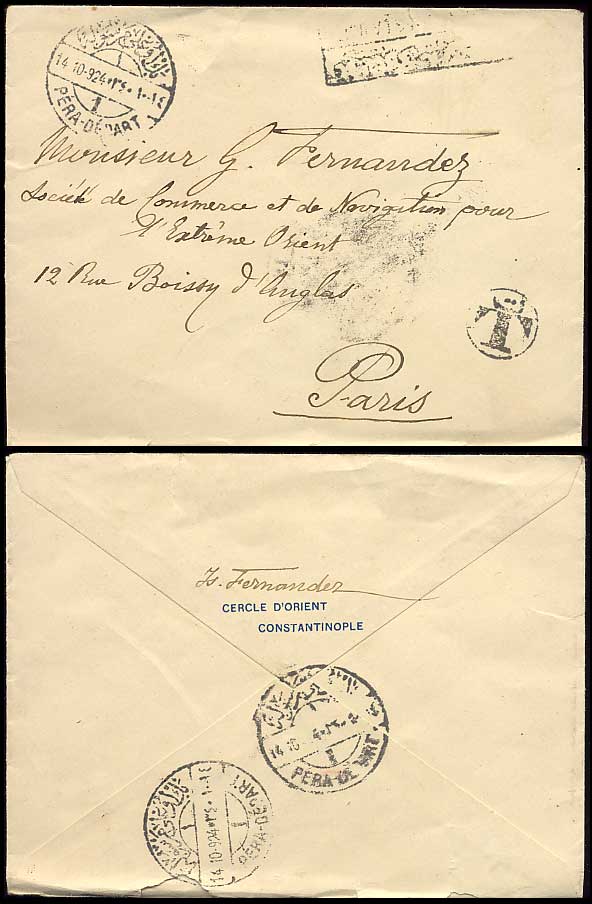 14.10.924 • ٣٤٠ • ١٠ • ١٤
1
PÉRA-DÉPART
Monsieur G. Fernandez
Société de Commerce et de Navigation pour
l'Extrême Orient
12 Rue Boissy d'Anglas
T
Paris
Is. Fernandez
CERCLE D'ORIENT
CONSTANTINOPLE
14.10
1
PÉRA-DÉPART
14.10.924 • ٣٤٠ • ١٠ • ١٤
1
PÉRA-DÉPART